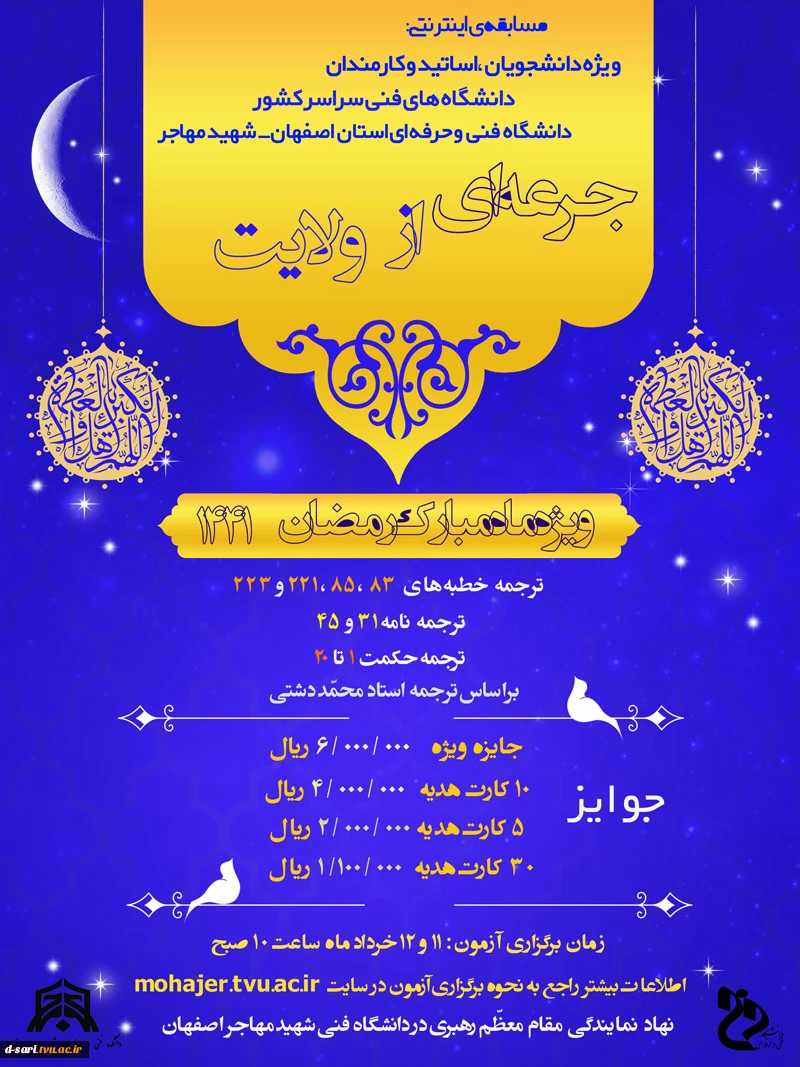 مسابقه‌ی اینترنتی:
ویژه دانشجویان ،اساتید و کارمندان
دانشگاه های فنی سراسر کشور
دانشگاه فنی وحرفه ای استان اصفهان_ شهید مهاجر
جرعه‌ای از ولایت
ویژه ماه مبارک رمضان ۱۴۴۱
ترجمه خطبه های ۸۳ ،۸۵ ،۲۲۱ و ۲۲۳
ترجمه نامه ۳۱ و ۴۵
ترجمه حکمت ۱ تا ۲۰
براساس ترجمه استاد محمّد دشتی
جوایز
جایزه ویژه ۶/۰۰۰/۰۰۰ ریال
۱۰ کارت هدیه ۴/۰۰۰/۰۰۰ ریال
۵ کارت هدیه ۲/۰۰۰/۰۰۰ ریال
۳۰ کارت هدیه ۱/۱۰۰/۰۰۰ ریال
زمان برگزاری آزمون : ۱۱ و ۱۲ خرداد ماه ساعت ۱۰ صبح
اطلاعات بیشتر راجع به نحوه برگزاری آزمون در سایت mohajer.tvu.ac.ir
نهاد نمایندگی مقام معظّم رهبری در دانشگاه فنی شهید مهاجر اصفهان
d-sari.tvu.ac.ir